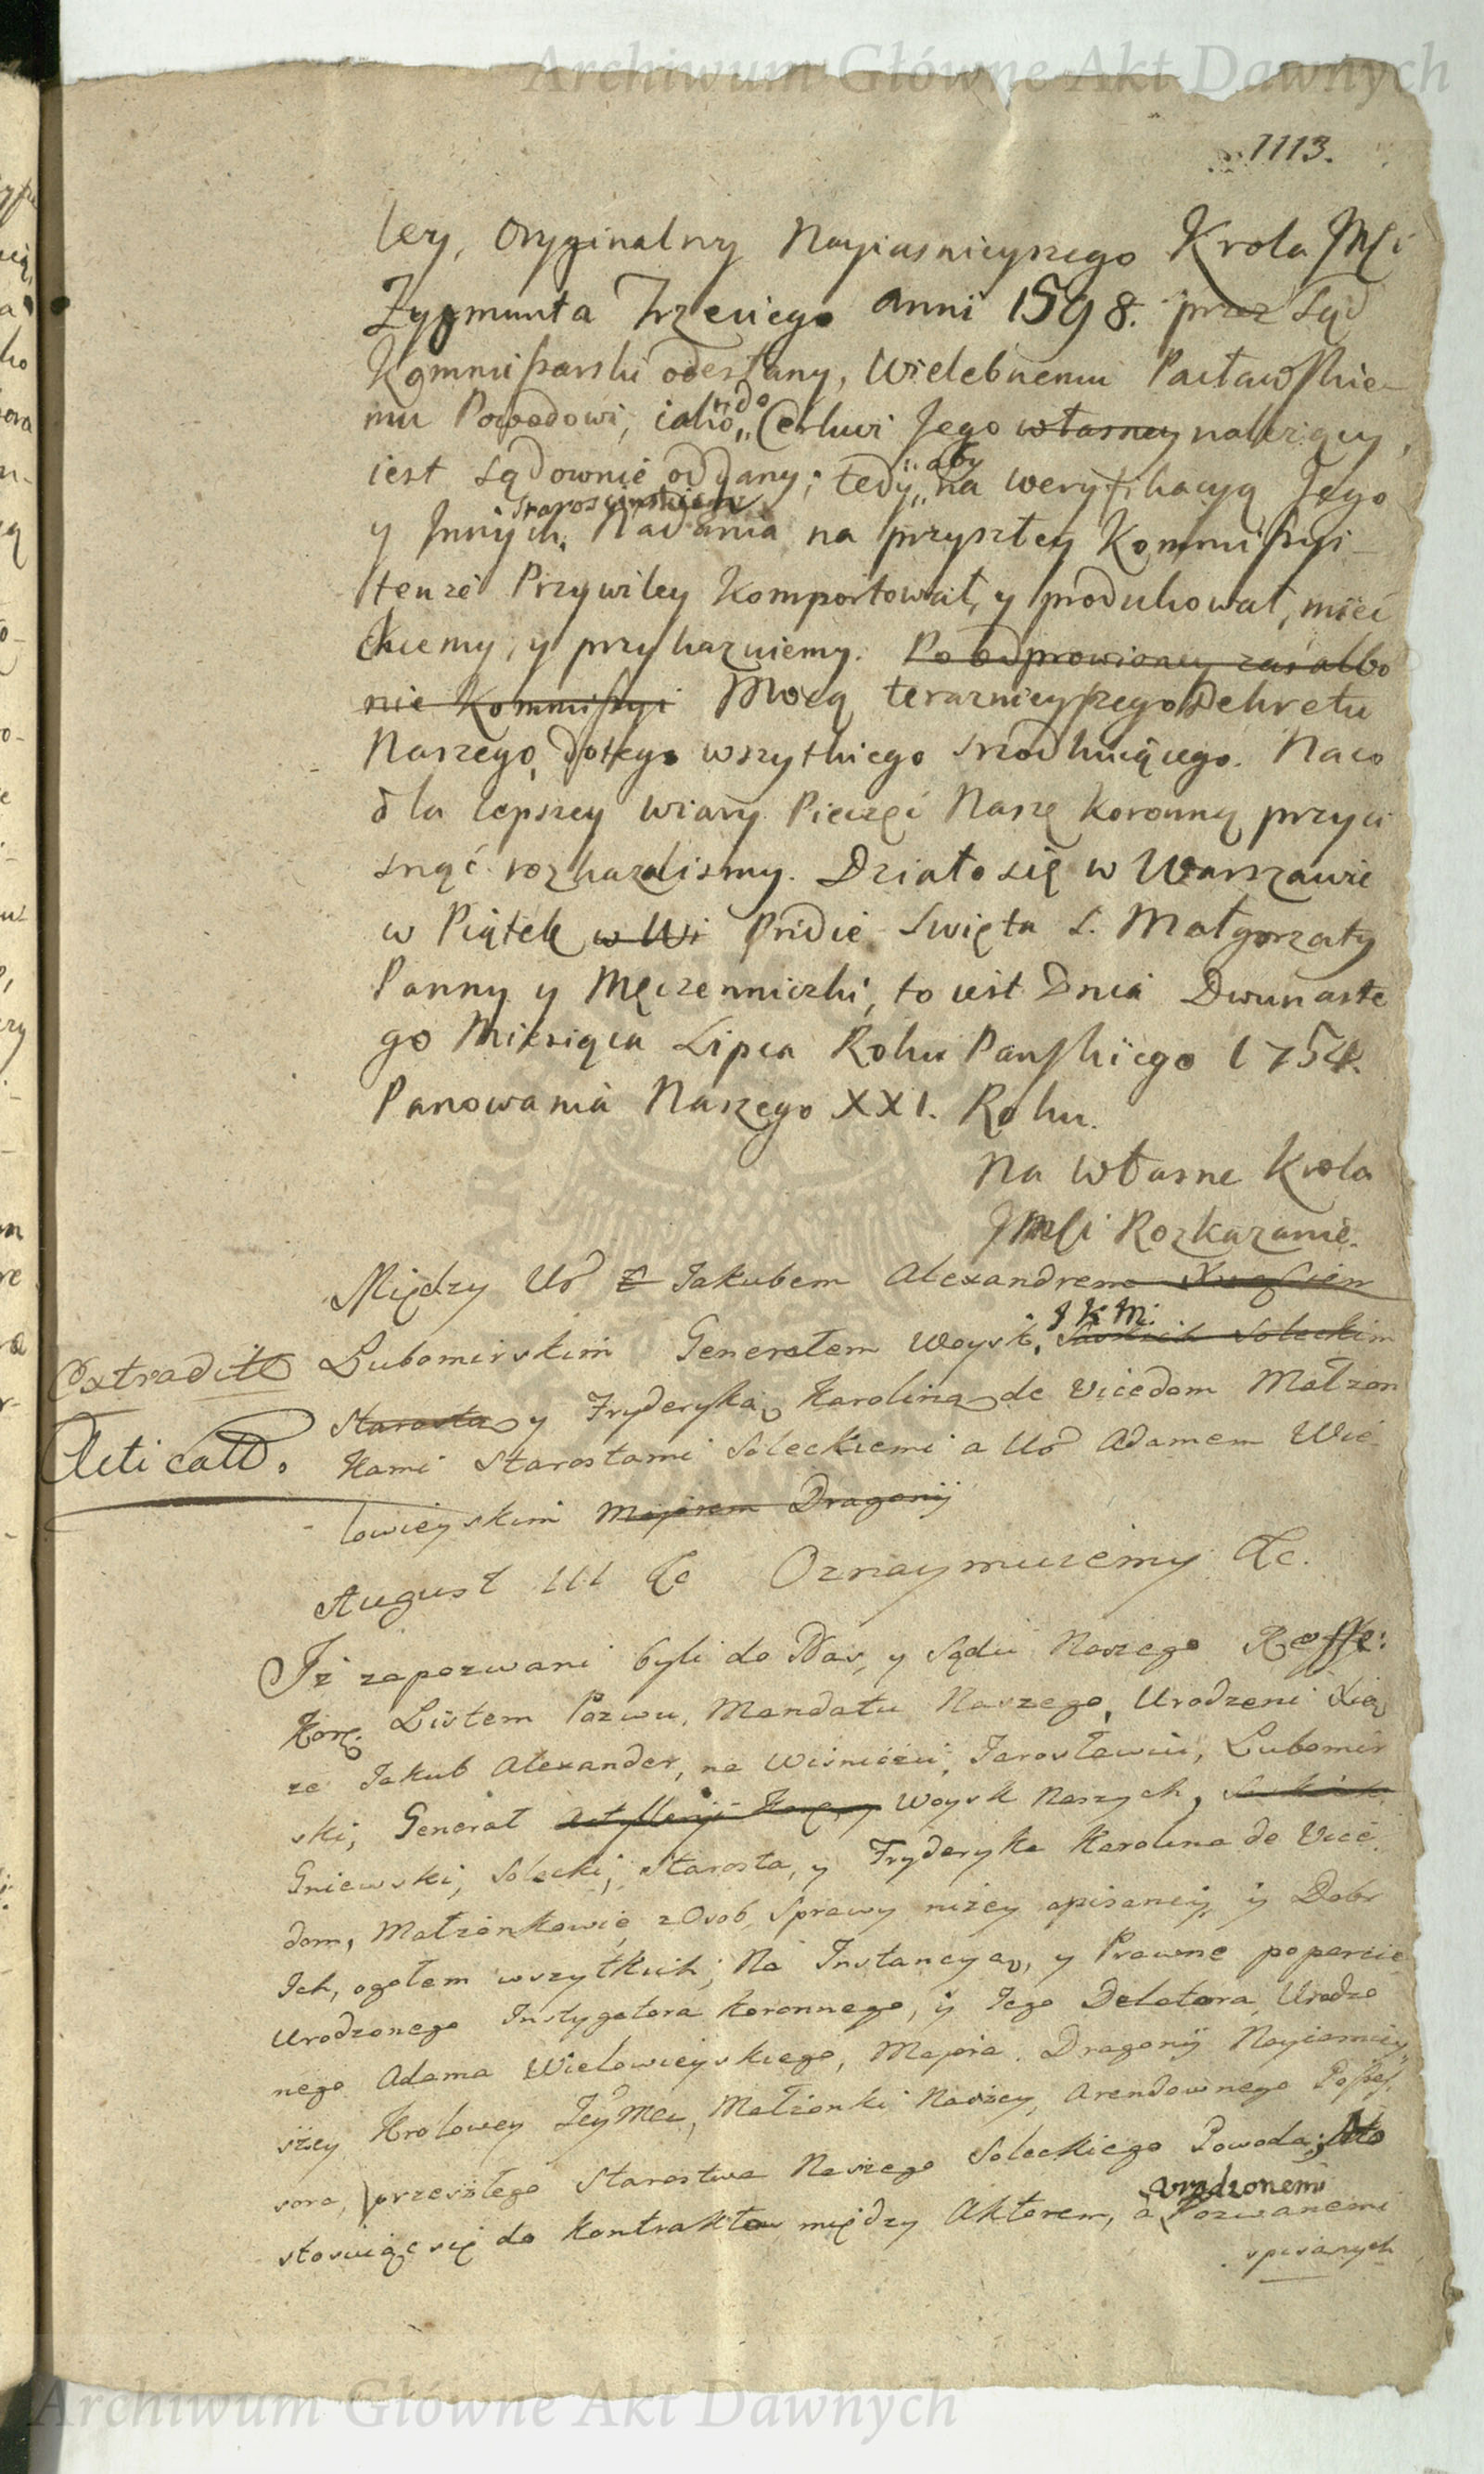 Archiwum Główne Akt Dawnych
1113.
ley, Oryginalny Nayiasnieyszego Krola JMśi
Zygmunta Trzeciego anni 1598. przez Sąd
Kommissarski odesłany, Wielebnemu Pacławskie-
mu Powodowi, iako do Cerkwi Jego własney należący,
iest Sądownie oddany; tedy aby na weryfikacyą Jego
y Innych Staroscinskiem Nadania na przyszłey Kommissyi
tenże Przywiley komportował, y produkował, mieć
chcemy, y przykazuiemy. Po odprawioney zas albo
nie Kommissyi Mocą teraznieyszego Dekretu
Naszego, do tego wszytkiego srzodkuiącego. Na co
dla lepszey wiary Pieczęć Naszę Koronną przyci
snąć rozkazalismy. Działo się w Warszawie
w Piątek w Wi Pridie Swięta S. Małgorzaty
Panny y Męczenniczki, to iest Dnia Dwunaste
go Miesiąca Lipca Roku Panskiego 1754.
Panowania Naszego XXI. Roku.
Na własne Krola
JMśi Rozkazanie.
Między Ur Z Jakubem Alexandrem
Lubomirskim Generałem Woysk, J K M: Soleckim
extradit
Starosta y Fryderyką Karoliną de Vicedom Małżon
kami Starostami Soleckiemi a Ur Adamem Wie
lowieyskim Majorem Dragonij
August III &c Oznaymuiemy &c.
Iż zapozwani byli do Nas, y Sądu Naszego Reffe:
Kor. Listem Pozwu, Mandatu Naszego, Urodzeni Xią
że Jakub Alexander, na Wiśniczu, Jarosławiu, Lubomir
ski, Generał Artylleryi Woysk Naszych,
Gniewski, Solecki, Starosta, y Fryderyka Karolina de Vice
dom, Małżonkowie z Osob, Sprawy niżey opisaney, y Dobr
Ich, ogołem wszytkich; Na Instancyą, y Prawne poparcie
Urodzonego Instygatora Koronnego, y Jego Delatora Urodzo
nego Adama Wielowieyskiego, Majora Dragonij Nayiasniey
szey Krolowey Jeymci, Małżonki Naszey, Arendownego Posses
sora, przeszłego Starostwa Naszego Soleckiego Powoda;
stosuiąc się do Kontraktow między Aktorem, a Urodzonemi Pozwanemi
spisanych
Archiwum Główne Akt Dawnych